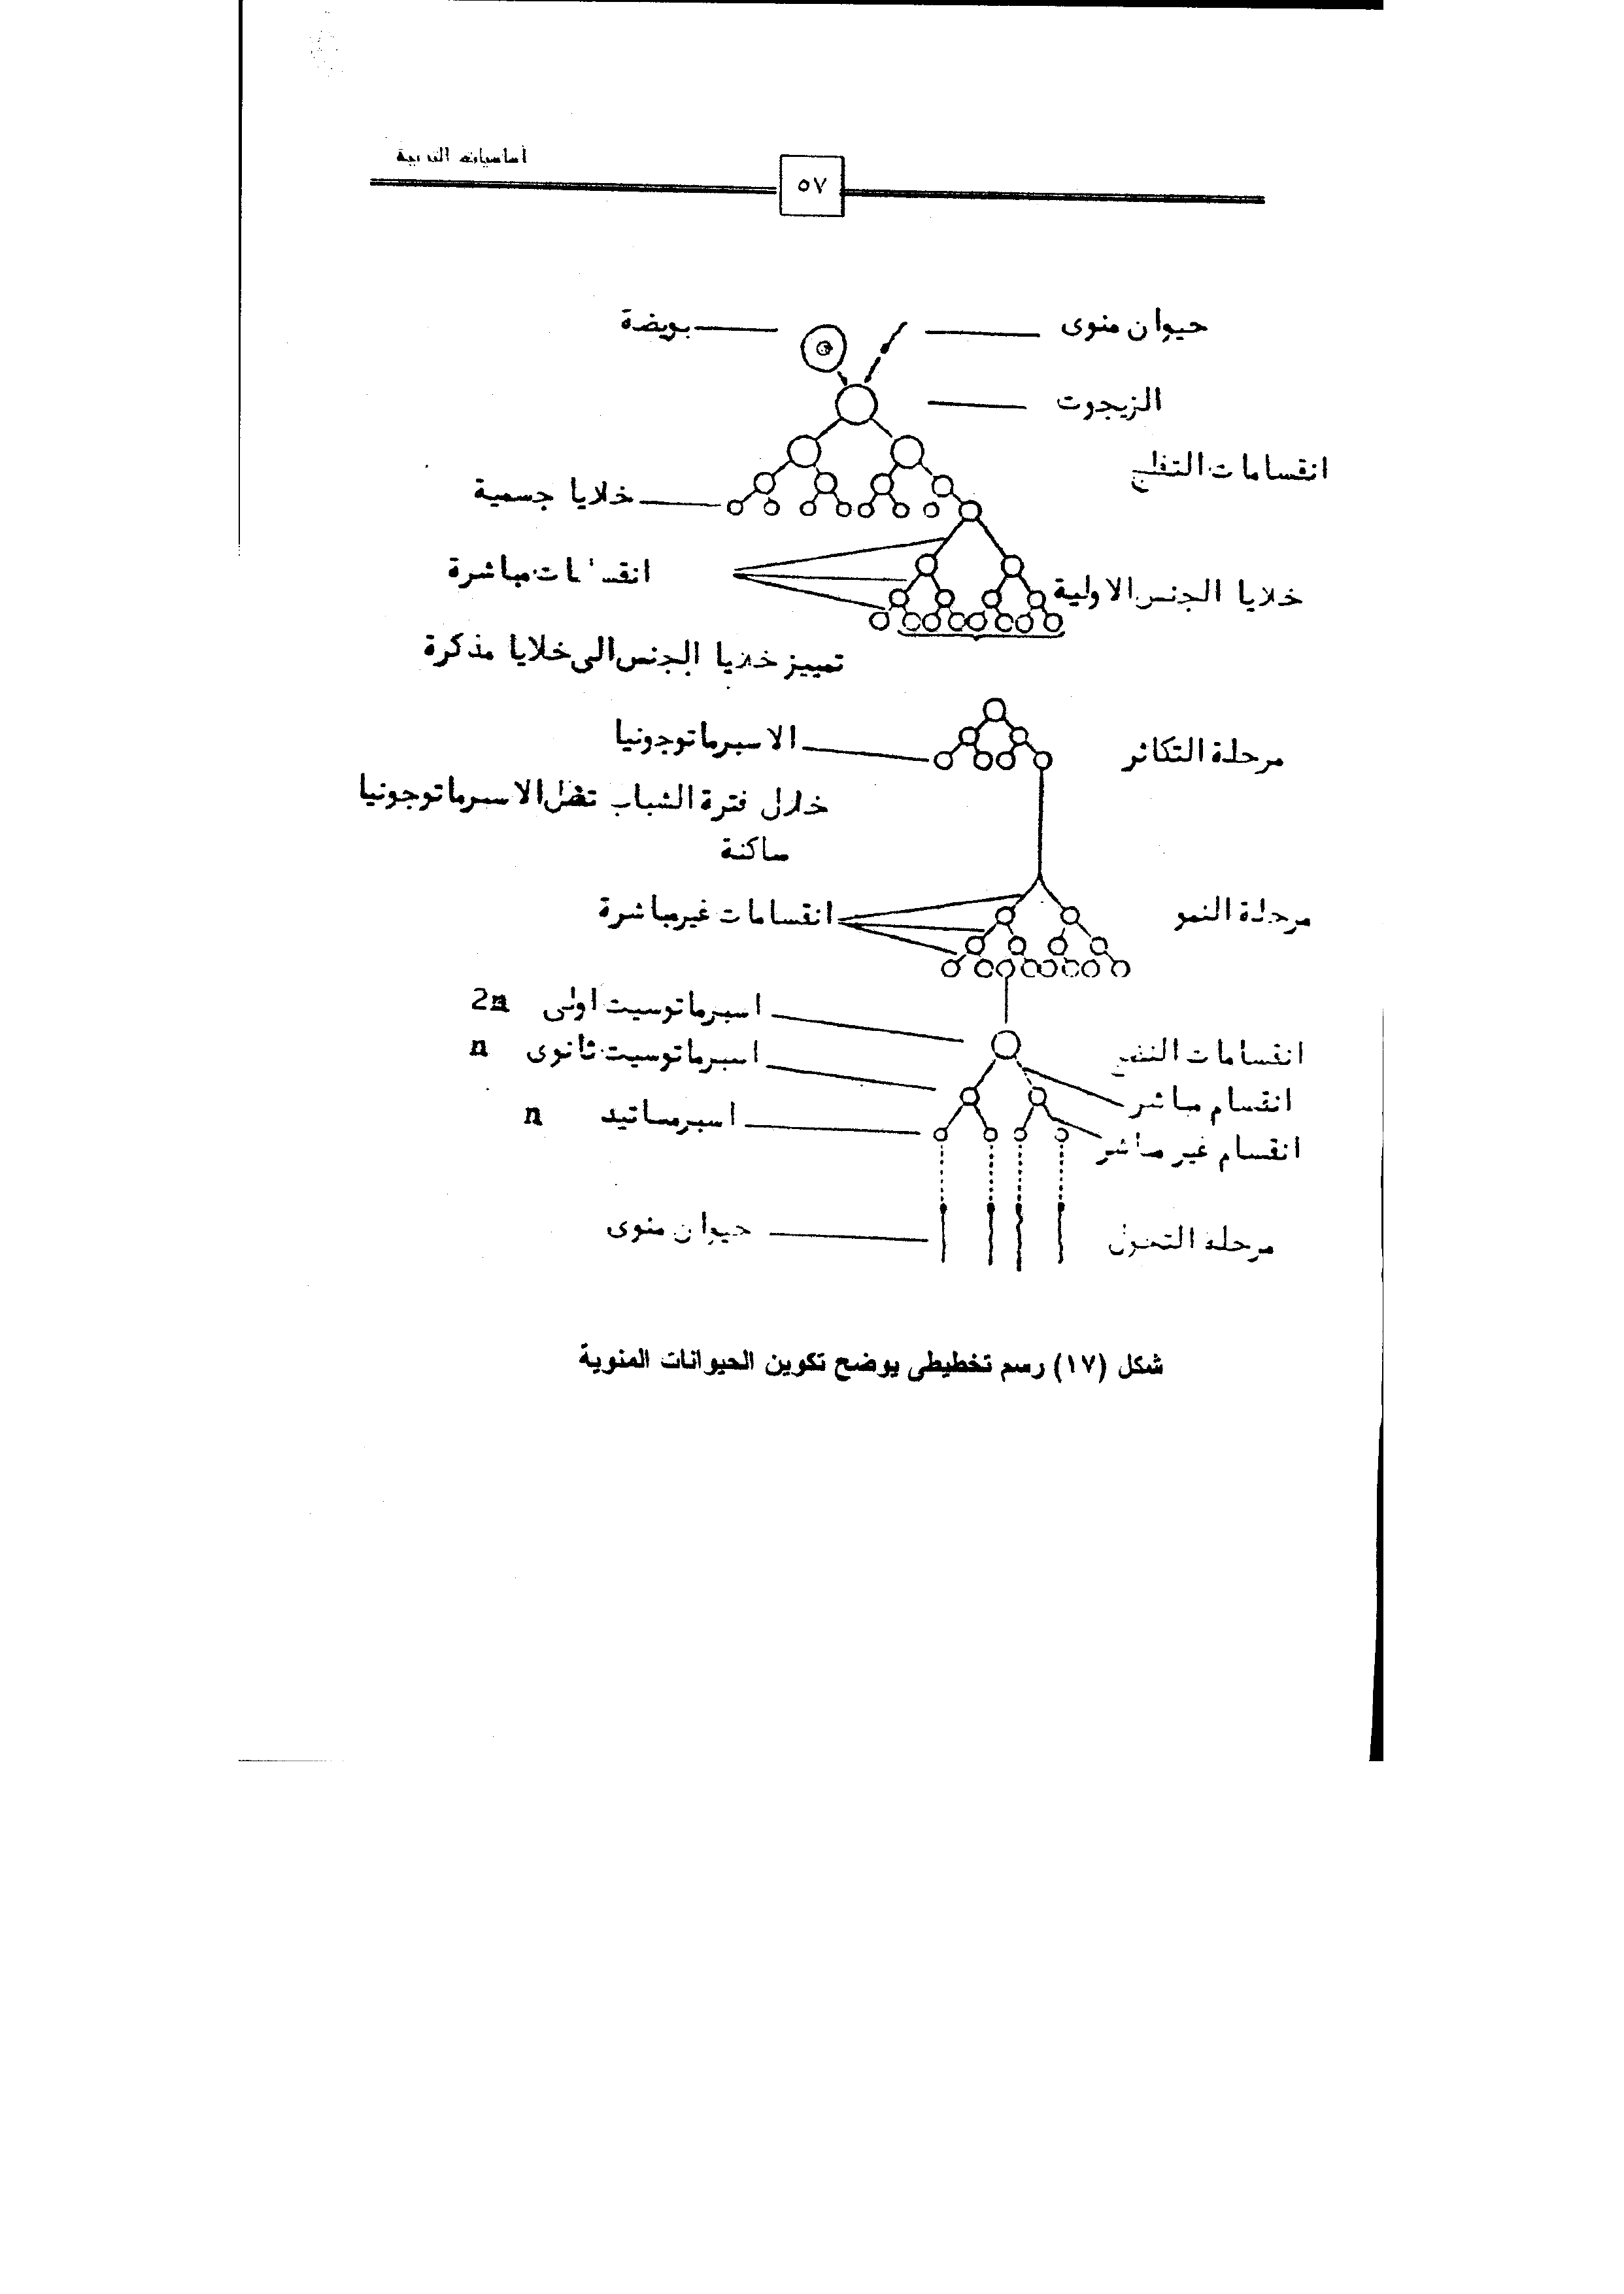 أساسيات التربية
٥٧
حيوان منوى
بويضة
الزيجوت
انقسامات التفلج
خلايا جسمية
انقسامات مباشرة
خلايا الجنس الاولية
تمييز خلايا الجنس الى خلايا مذكرة
الاسبرماتوجونيا
مرحلة التكاثر
خلال فترة الشباب تظل الاسبرماتوجونيا
ساكنة
انقسامات غير مباشرة
مرحلة النمو
اسبرماتوسيت اولى 2n
انقسامات النضج
اسبرماتوسيت ثانوى n
انقسام مباشر
اسبرمساتيد n
انقسام غير مباشر
حيوان منوى
مرحلة التحول
شكل (١٧) رسم تخطيطى يوضح تكوين الحيوانات المنوية